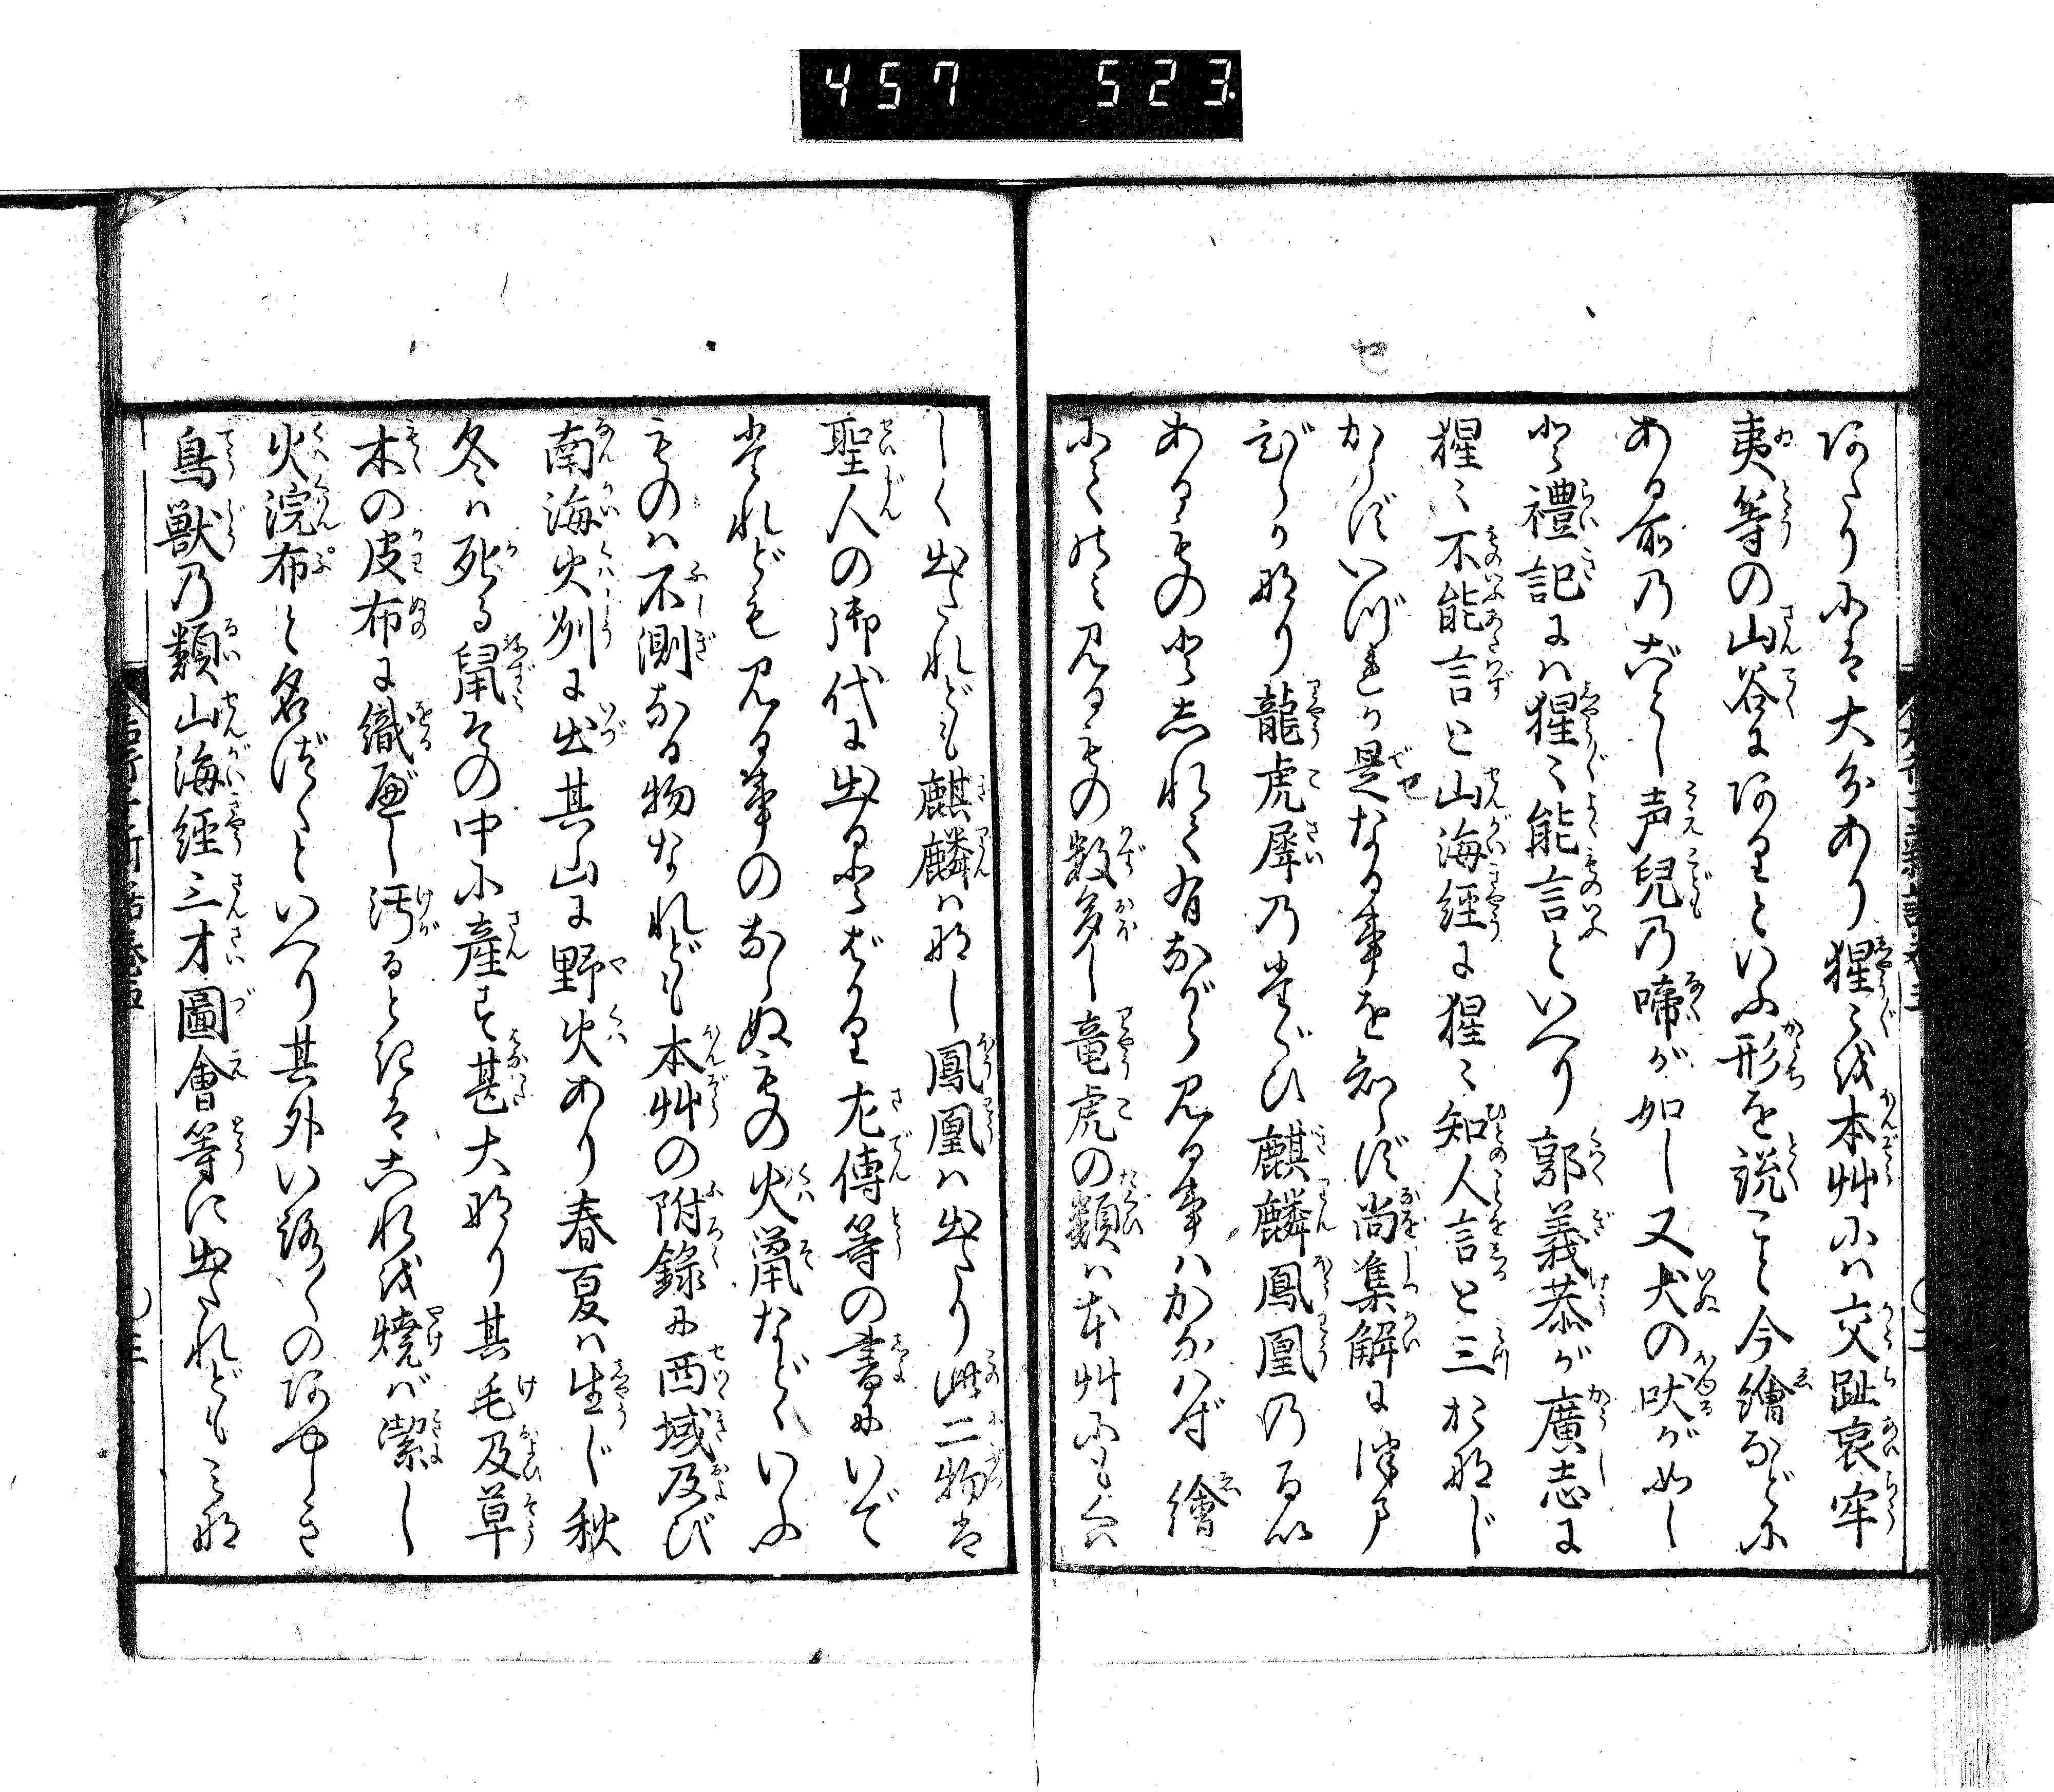 457 523
セ
阿たりには大分あり猩〻を本艸には交趾哀牢
夷等の山谷に阿りといふ形を説こと今繪などに
ある所のごとし声兒の啼が如し又犬の吠が如し
と禮記には猩〻能言といへり郭義恭が廣志に
猩〻不能言と山海經に猩〻知人言と三
かくいづれか是なる事を知らず尚集解に
なり龍虎犀のたぐひ麒麟鳳凰の
あるものとしれて有ながら見る事はかなはず繪
にて見るもの数多し竜虎の類は本艸にも
しく出たれども麒麟はなし鳳凰は出たり此二物は
聖人の御代に出るとばかり左傳等の書にいで
たれども見る事のならぬもの火鼠などゝいふ
ものは不測なる物なれども本艸の附錄に西域及び
南海火州に出其山に野火あり春夏は生じ秋
冬は死る鼠その中に産す甚大なり其毛及草
木の皮布に織べし汚るときはこれを燒ば潔し
火浣布と名づくといへり其外いろ〳〵の阿やしき
鳥獣の類山海經三才圖會等に出たれどもみな